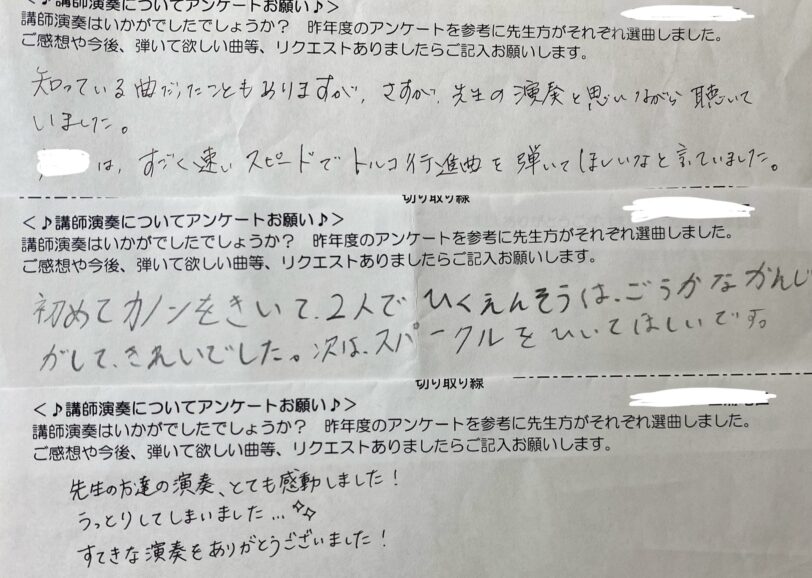 <♪講師演奏についてアンケートお願い♪>
講師演奏はいかがでしたでしょうか？ 昨年度のアンケートを参考に先生方がそれぞれ選曲しました。
ご感想や今後、弾いて欲しい曲等、リクエストありましたらご記入お願いします。
知っている曲だったこともありますが、さすが、先生の演奏と思いながら聴いて
いました。
は、すごく速いスピードでトルコ行進曲を弾いてほしいなと言っていました。
切り取り線
<♪講師演奏についてアンケートお願い♪>
講師演奏はいかがでしたでしょうか？ 昨年度のアンケートを参考に先生方がそれぞれ選曲しました。
ご感想や今後、弾いて欲しい曲等、リクエストありましたらご記入お願いします。
初めてカノンをきいて、2人でひくえんそうは、ごうかなかんじ
がして、きれいでした。次は、スパークルをひいてほしいです。
切り取り線
<♪講師演奏についてアンケートお願い♪>
講師演奏はいかがでしたでしょうか？ 昨年度のアンケートを参考に先生方がそれぞれ選曲しました。
ご感想や今後、弾いて欲しい曲等、リクエストありましたらご記入お願いします。
先生の方達の演奏、とても感動しました！
うっとりしてしまいました…✧✧
すてきな演奏をありがとうございました！